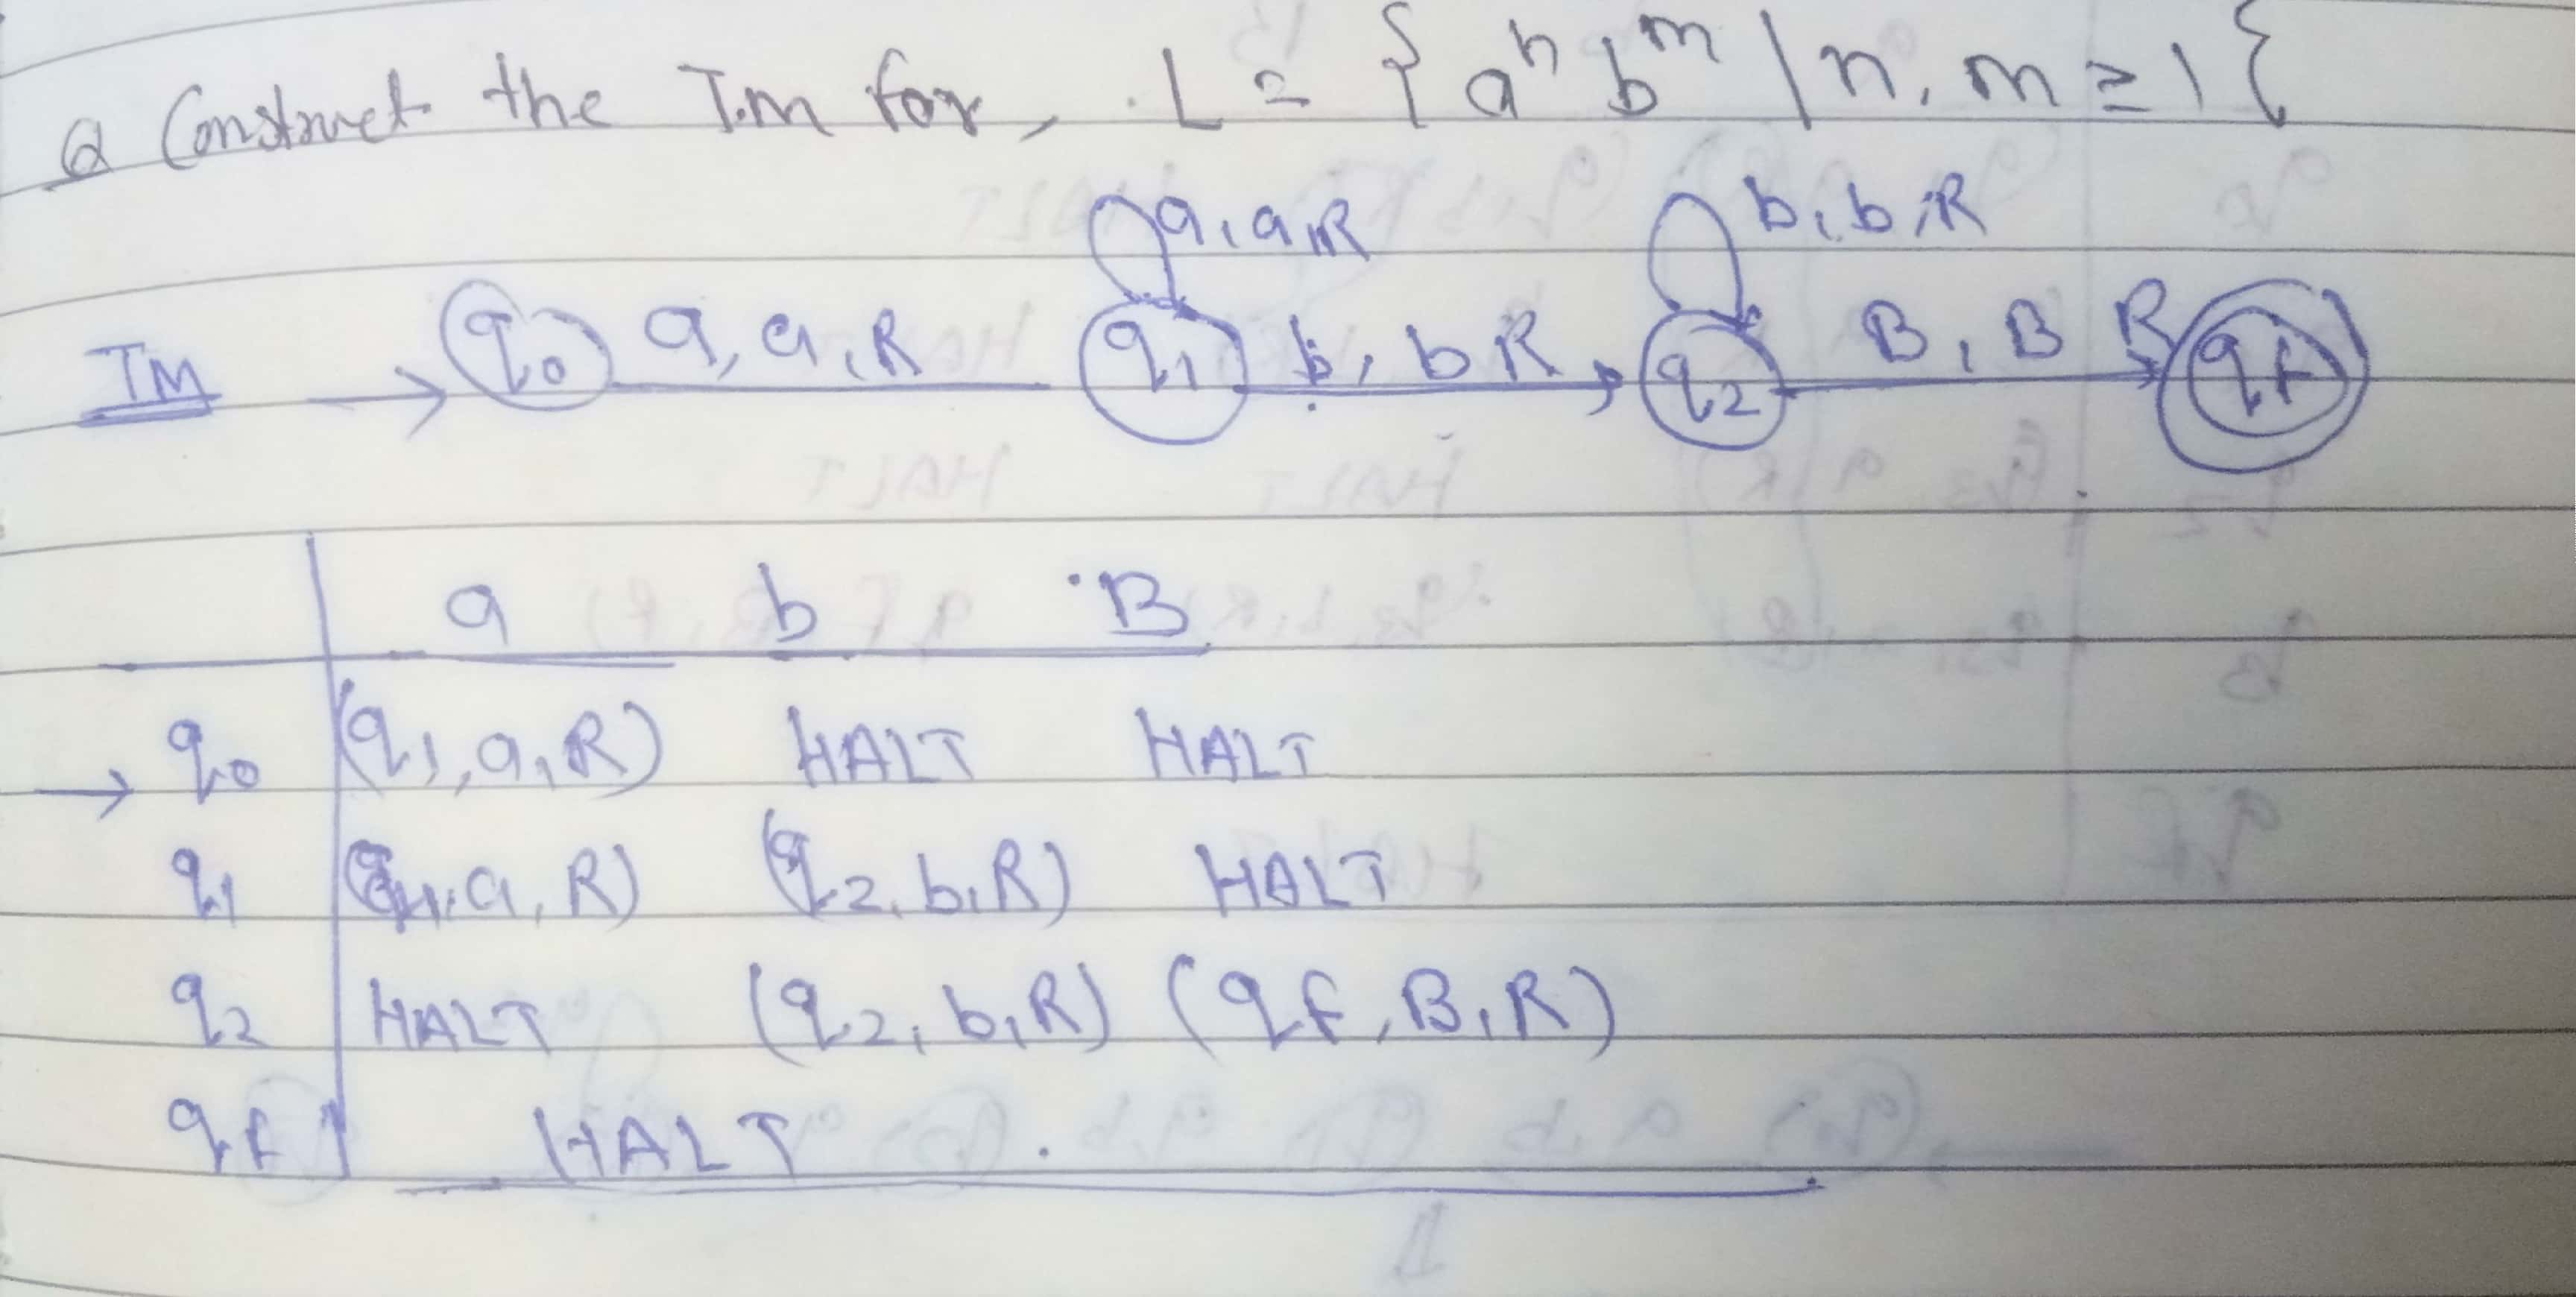 Q Construct the T.m for, L = { aⁿ bᵐ | n, m ≥ 1 {
a, a, R b, b, R
TM → q0 a, a, R q1 b, b R q2 B, B R qf
a b B
→ q0 (q1, a, R) HALT HALT
q1 (q1, a, R) (q2, b, R) HALT
q2 HALT (q2, b, R) (qf, B, R)
qf HALT